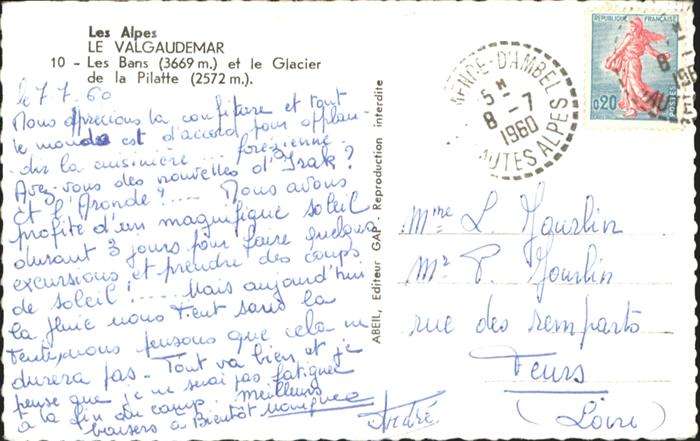 Les Alpes
LE VALGAUDEMAR
10 - Les Bans (3669 m.) et le Glacier
de la Pilatte (2572 m.).
le 7.7.60
Nous apprécions la confiture et tout
le monde est d'accord pour applau-
dir la cuisinière ... forézienne.
Avez-vous des nouvelles d'Isak ?
Et l'Aronde ? ..... Nous avons
profité d'un magnifique soleil
durant 3 jours pour faire quelques
excursions et prendre des coups
de soleil ! ..... Mais aujourd'hui
la pluie nous tient sous la
tente, nous pensons que cela ne
durera pas. Tout va bien et je
pense que je ne serai pas fatiguée
à la fin du camp. Meilleurs
baisers à Bientôt Monique
André
ABEIL, Editeur GAP - Reproduction interdite
MENDE-D'AMBEL
5 H
8 - 7
1960
HAUTES ALPES
RÉPUBLIQUE FRANÇAISE
POSTES
0,20
8
Mme L. Jourlin
Mr P. Jourlin
rue des remparts
Feurs
(Loire)